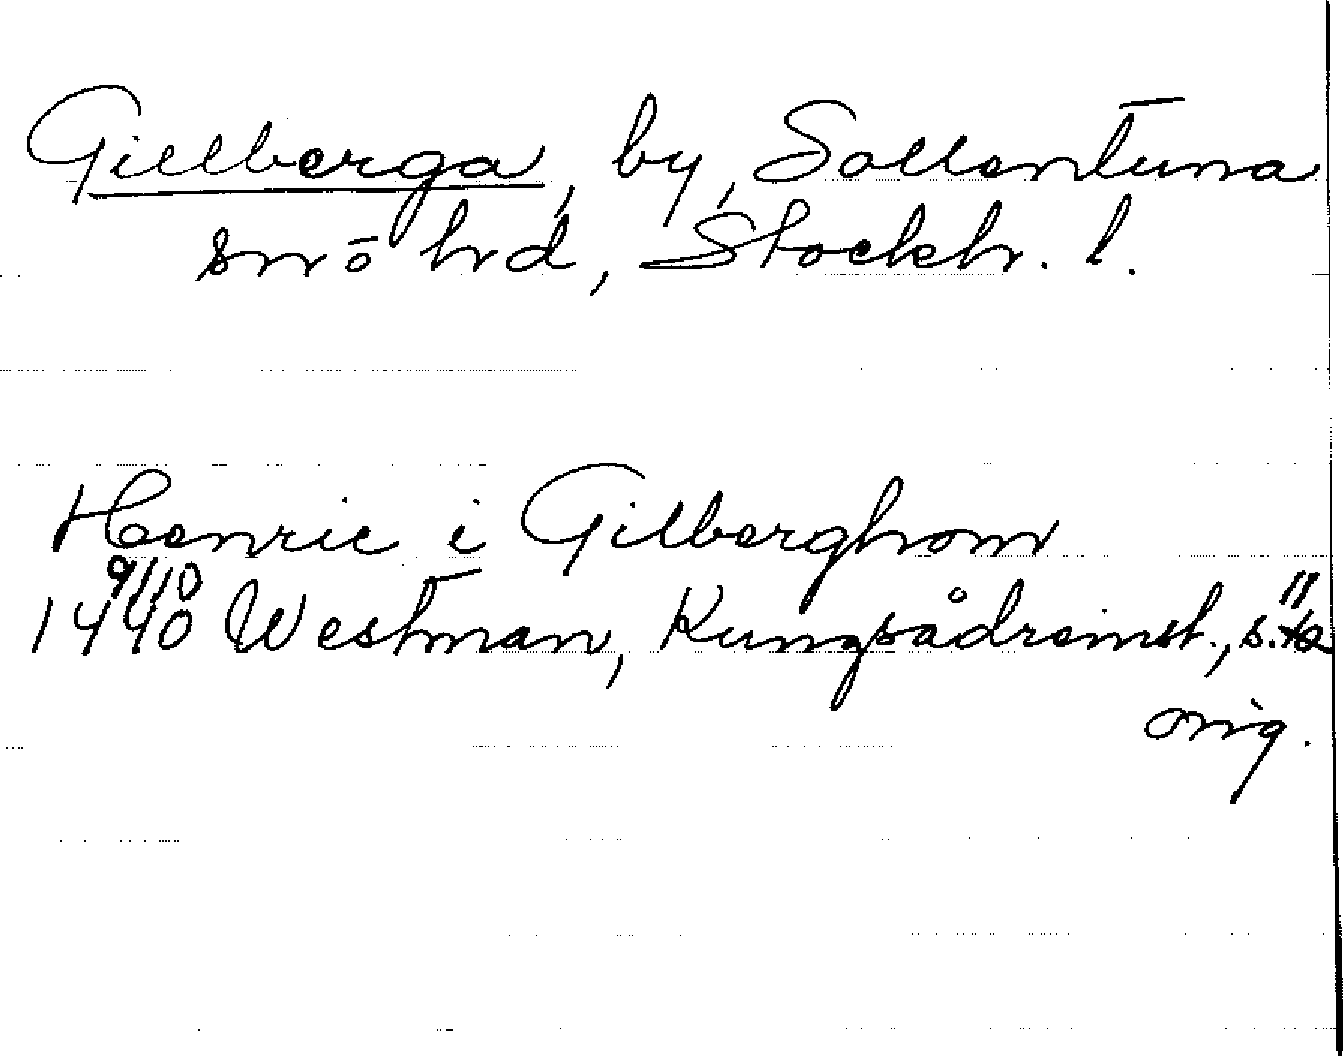 Gillberga, by, Sollentuna
sn o hd, Stockh. l.
Henric i Gilberghom
9/10
1440 Westman, Kungsådrainst., s.
orig.